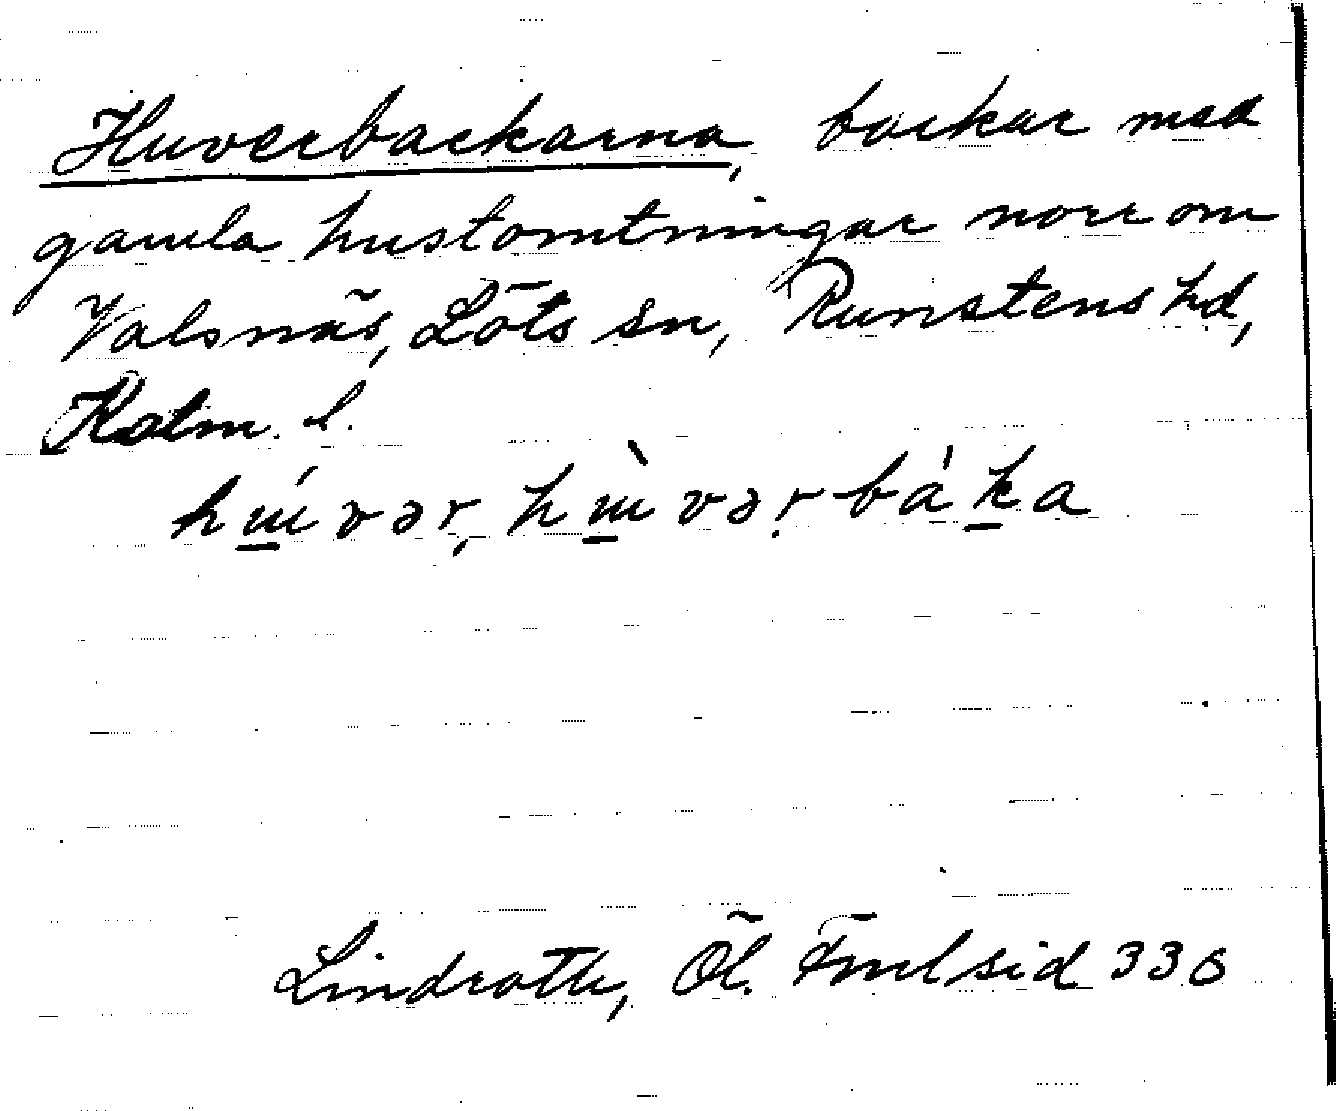 Huverbackarna, backar med
gamla hustomtningar norr om
Valsnäs, Löts sn, Runstens hd,
Kalm. l.
hɯ́vər, hɯ̀vərbàka
Lindroth, Öl. Fmlsid 336